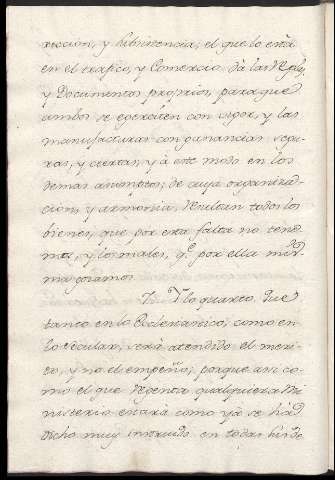 reccion, y subsistencia; el que lo está
en el trafico, y Comercio dà las Reglas,
y Documentos proprios, para que
ambos se egerciten con vigor, y las
manufacturas con ganancias segu-
ras, y ciertas, y à este modo en los
demas asumptos; de cuya organiza-
cion, y armonia, resultan todos los
bienes, que por esta falta no tene-
mos, y los males, q.e por ella mis-
ma gozamos.
Y lo quarto. Que
tanto en lo Eclesiastico, como en
lo Secular, será atendido el meri-
to, y no el empeño; porque asi co-
mo el que Regenta qualquiera Mi-
nisterio estará como yà se ha
dicho muy instruido en todas sus de